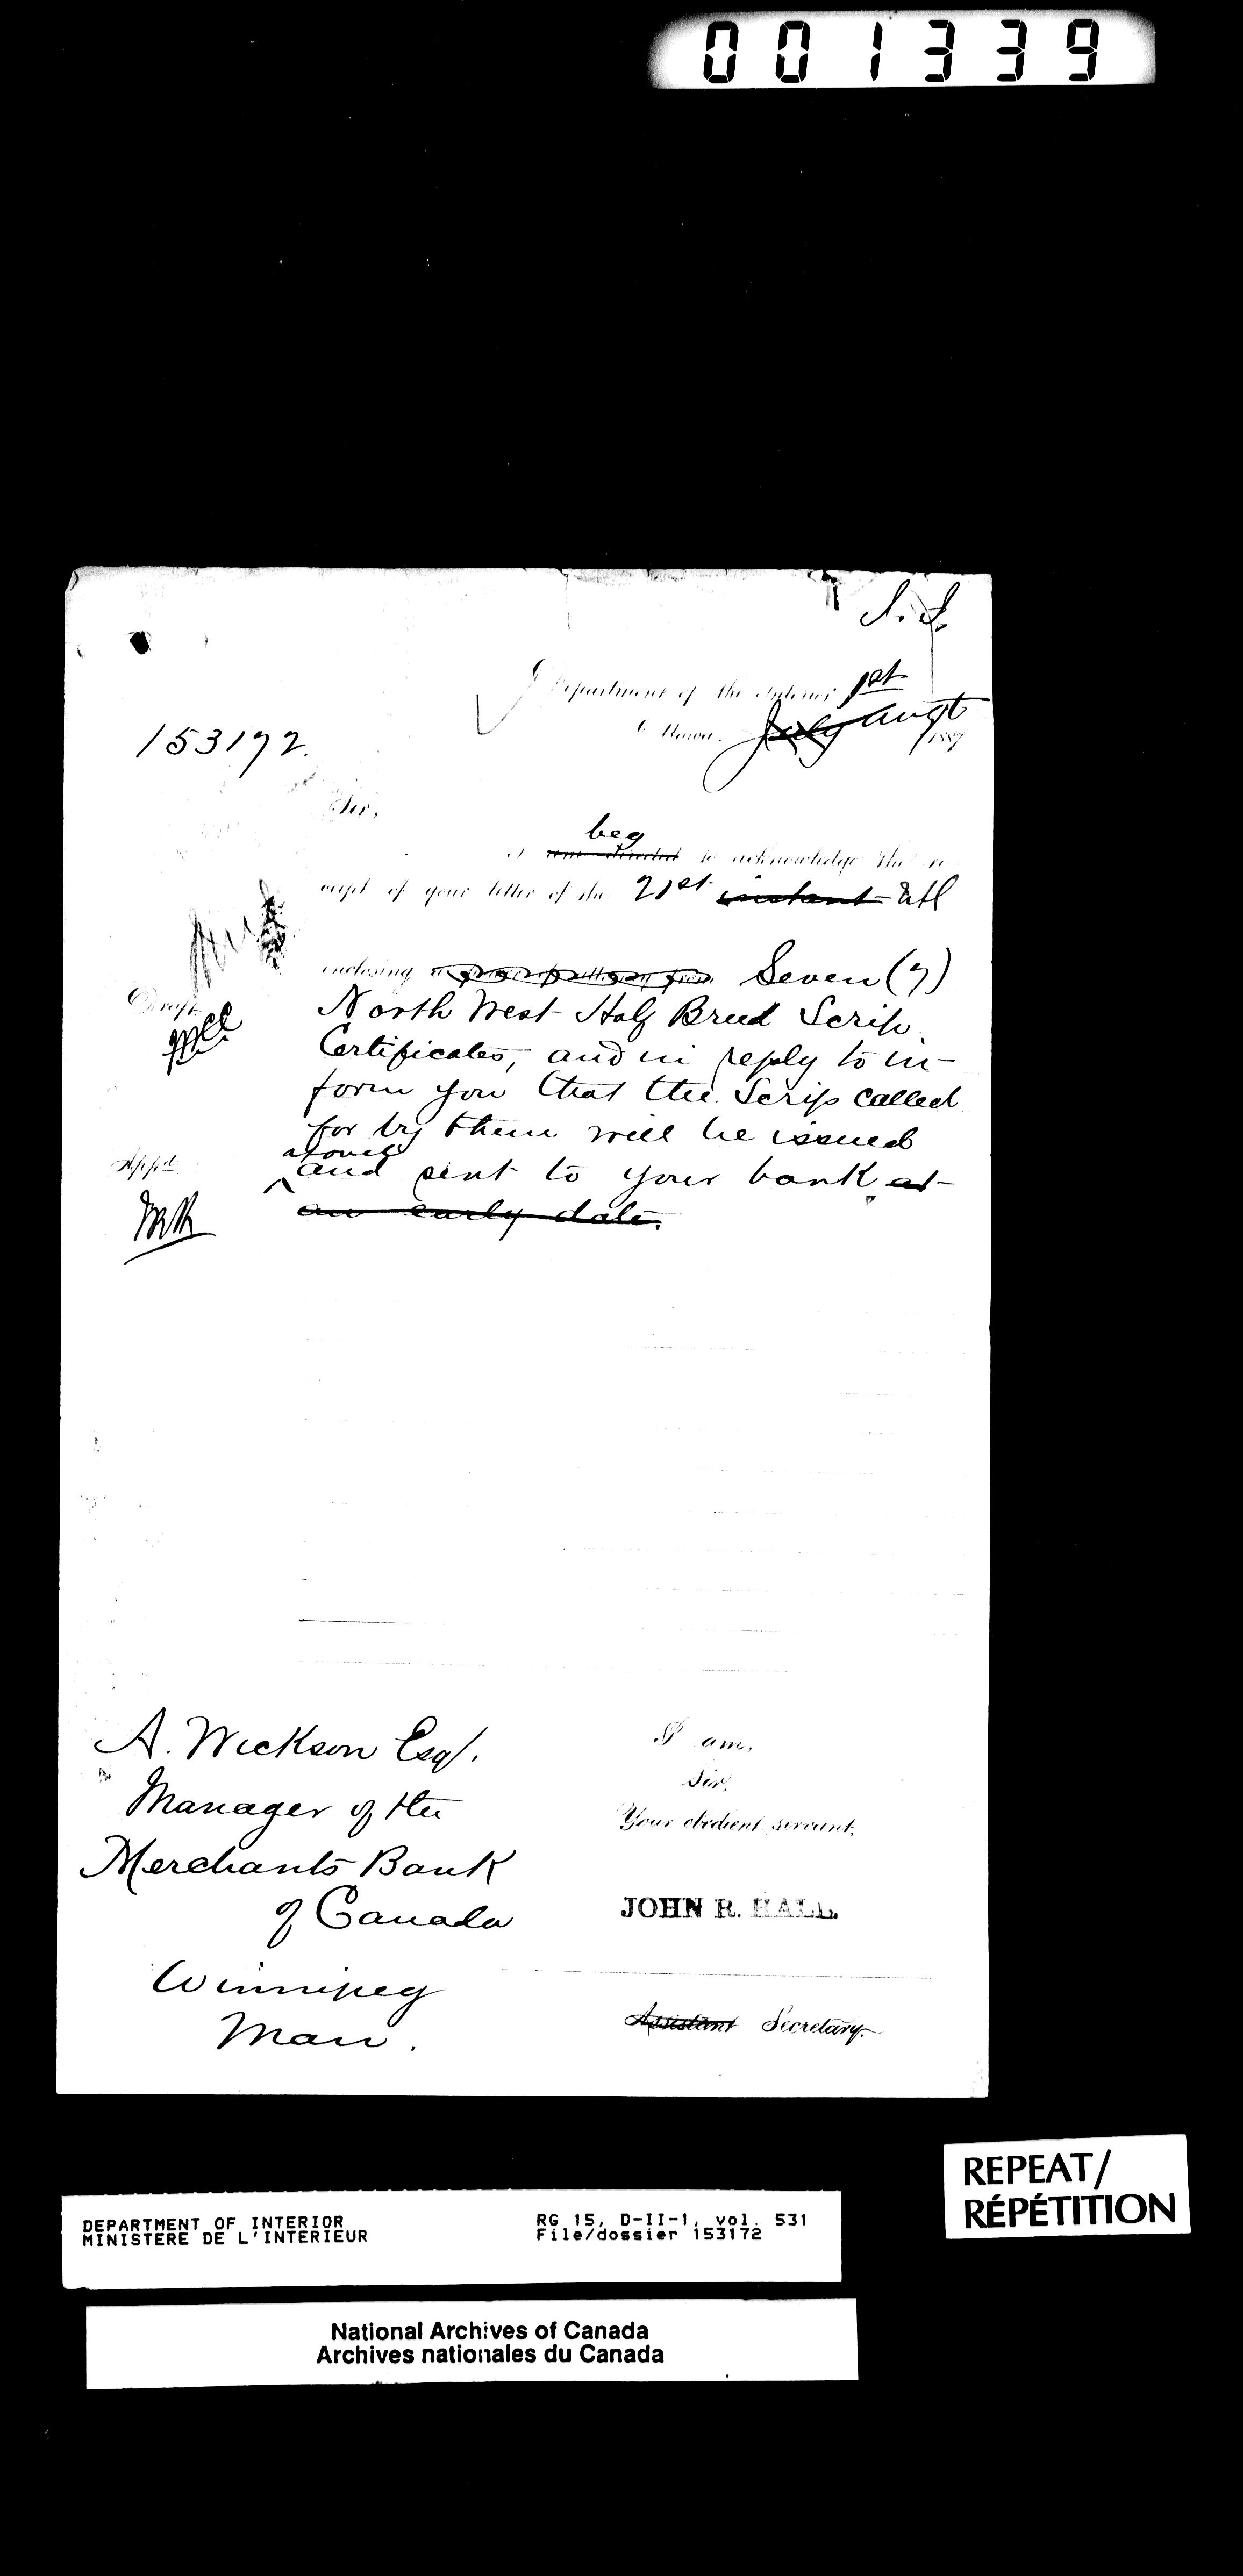 001339
Department of the Interior 1st
Ottawa, July Augt 1887
153172.
Sir,
beg
I am directed to acknowledge the re-
ceipt of your letter of the 21st instant Ult
enclosing Seven (7)
Draft
North West Half Breed Scrip
Certificates, and in reply to in-
form you that the Scrip called
for by them will be issued
at once
App'd
and sent to your bank at
an early date.
A. Wickson Esq.
Manager of the
Merchants Bank
of Canada
Winnipeg
Man.
I am,
Sir,
Your obedient servant,
JOHN R. HALL.
Assistant Secretary.
REPEAT/
RÉPÉTITION
DEPARTMENT OF INTERIOR
MINISTERE DE L'INTERIEUR
RG 15, D-II-1, vol. 531
File/dossier 153172
National Archives of Canada
Archives nationales du Canada